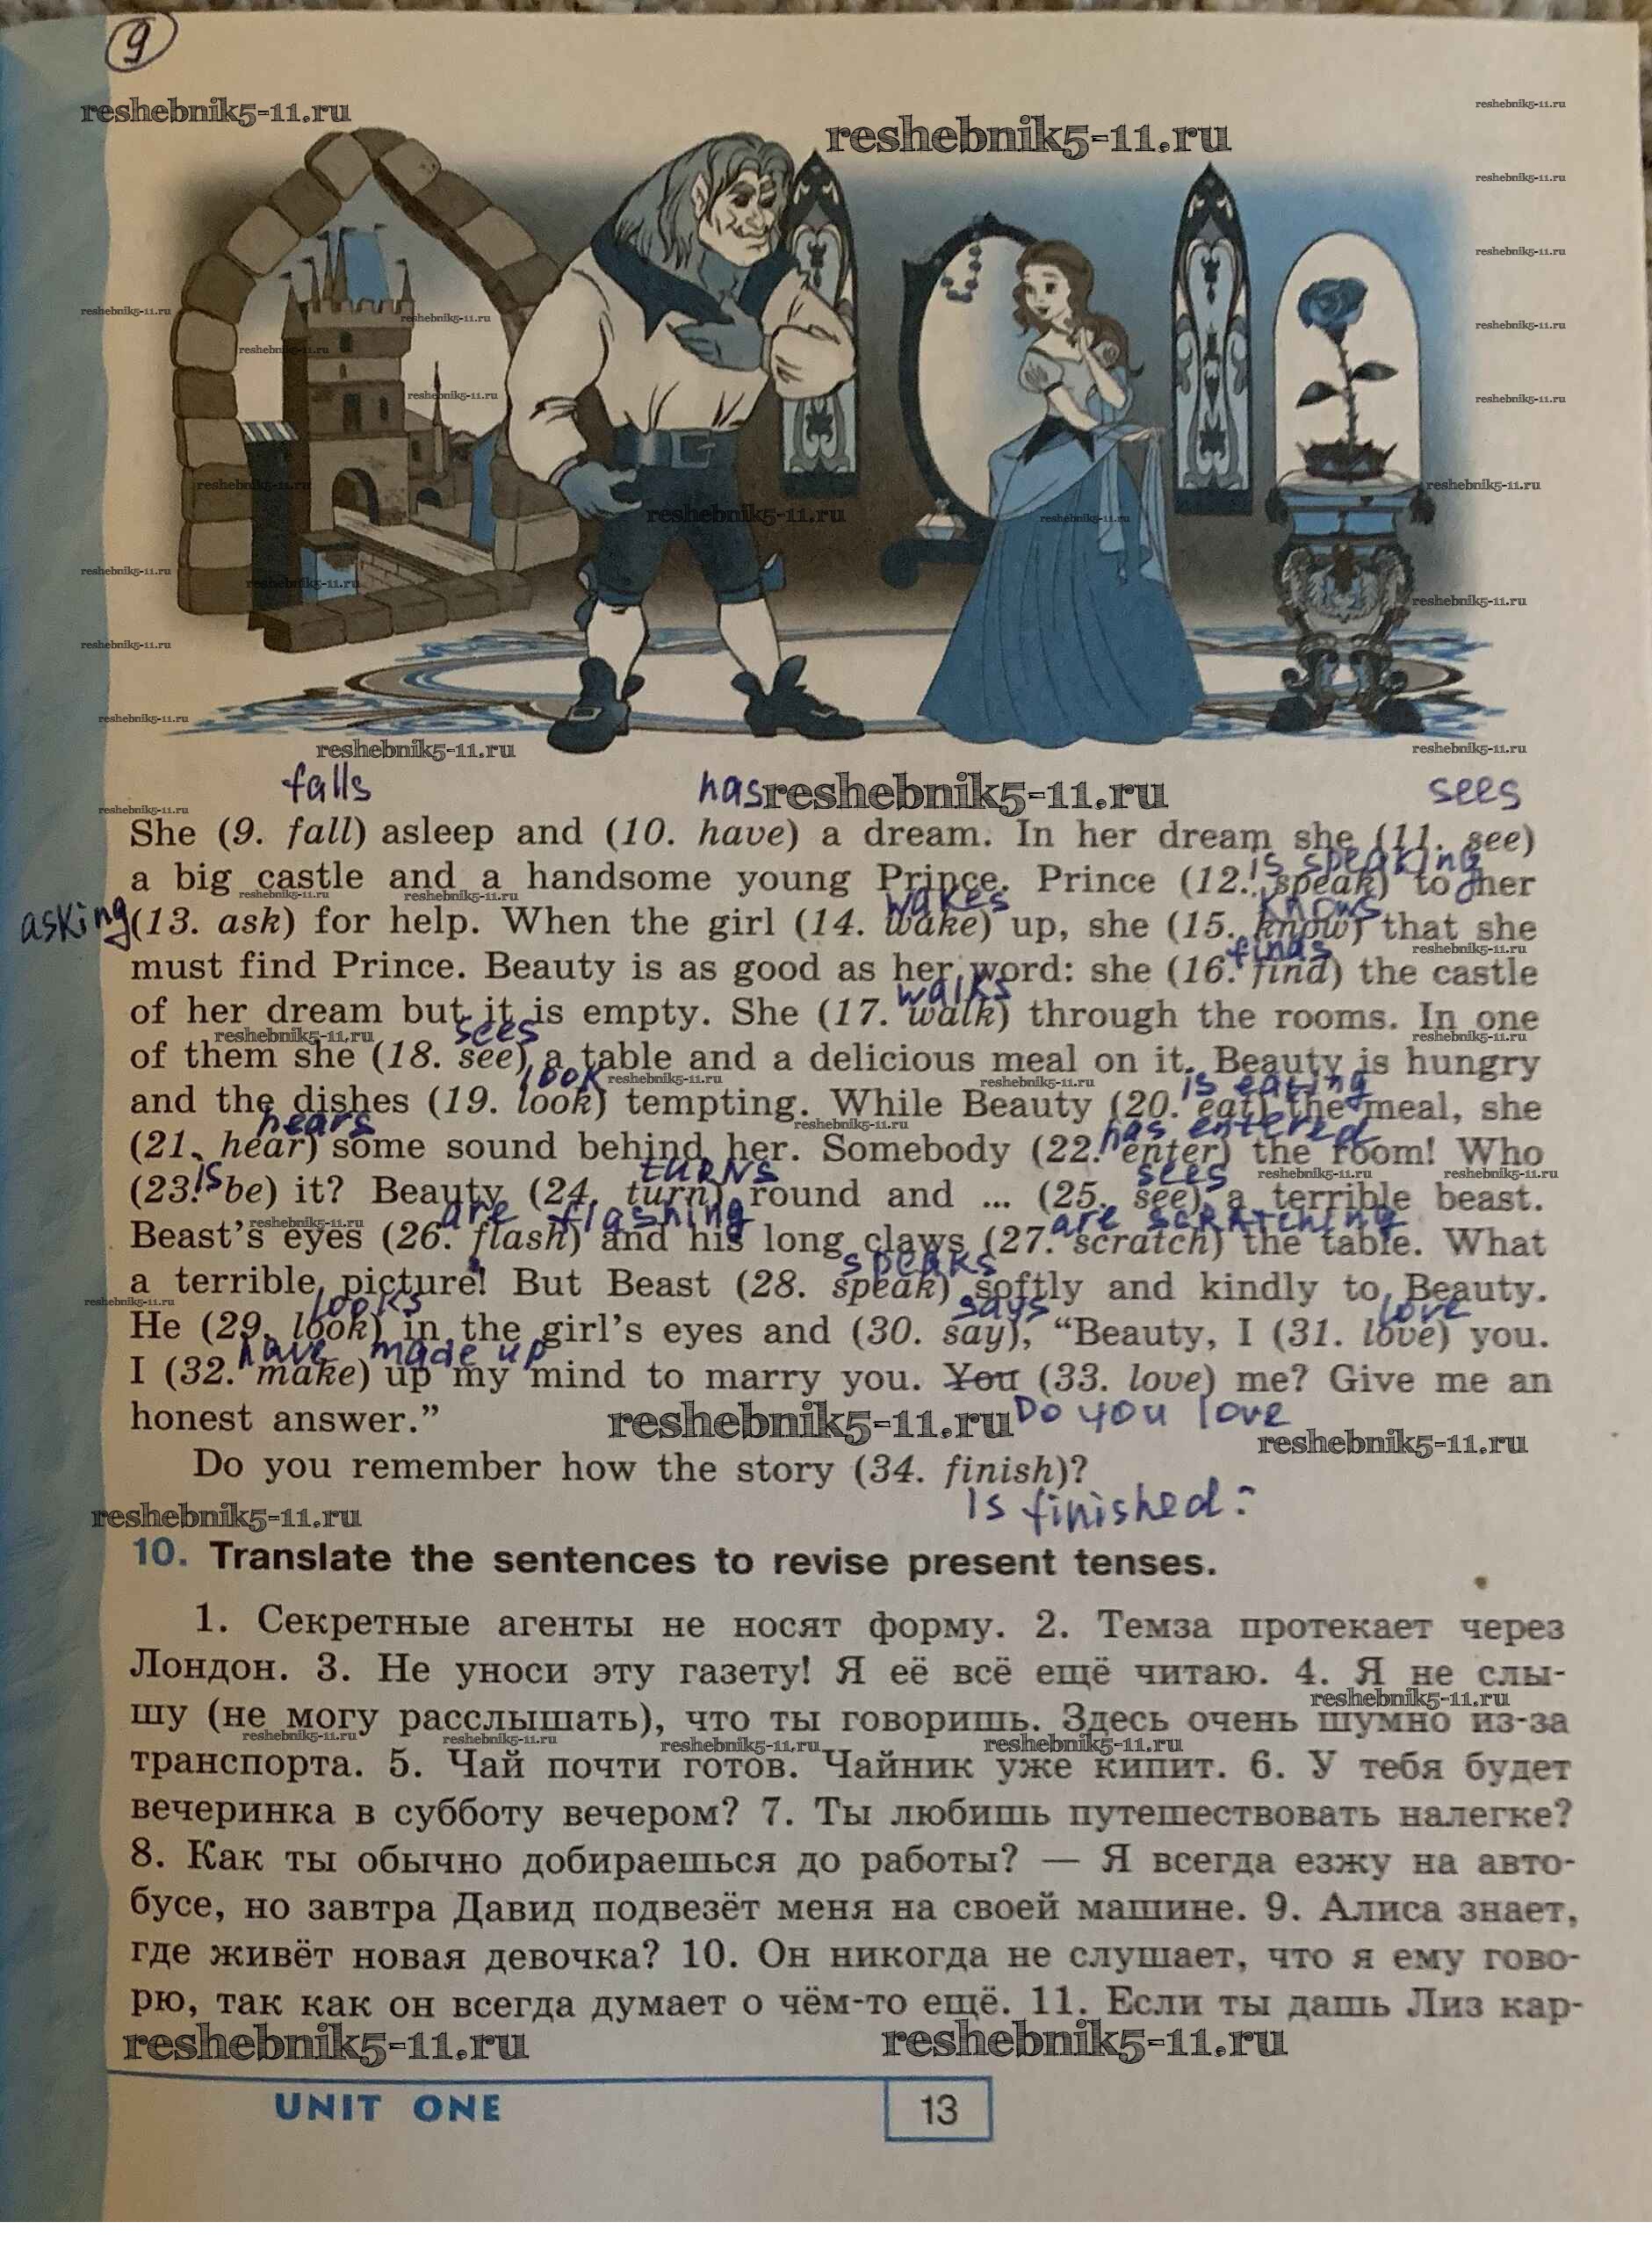 9
reshebnik5-11.ru
reshebnik5-11.ru
falls has reshebnik5-11.ru sees
She (9. fall) asleep and (10. have) a dream. In her dream she (11. see)
is speaking
a big castle and a handsome young Prince. Prince (12. speak) to her
wakes knows
asking (13. ask) for help. When the girl (14. wake) up, she (15. know) that she
finds
must find Prince. Beauty is as good as her word: she (16. find) the castle
walks
of her dream but it is empty. She (17. walk) through the rooms. In one
sees
of them she (18. see) a table and a delicious meal on it. Beauty is hungry
look is eating
and the dishes (19. look) tempting. While Beauty (20. eat) the meal, she
hears has entered
(21. hear) some sound behind her. Somebody (22. enter) the room! Who
is turns sees
(23. be) it? Beauty (24. turn) round and ... (25. see) a terrible beast.
are flashing are scratching
Beast's eyes (26. flash) and his long claws (27. scratch) the table. What
speaks
a terrible picture! But Beast (28. speak) softly and kindly to Beauty.
looks says love
He (29. look) in the girl's eyes and (30. say), “Beauty, I (31. love) you.
have made up
I (32. make) up my mind to marry you. You (33. love) me? Give me an
honest answer.” reshebnik5-11.ru Do you love
reshebnik5-11.ru
Do you remember how the story (34. finish)?
is finished?
reshebnik5-11.ru
10. Translate the sentences to revise present tenses.
1. Секретные агенты не носят форму. 2. Темза протекает через
Лондон. 3. Не уноси эту газету! Я её всё ещё читаю. 4. Я не слы-
шу (не могу расслышать), что ты говоришь. Здесь очень шумно из-за
транспорта. 5. Чай почти готов. Чайник уже кипит. 6. У тебя будет
вечеринка в субботу вечером? 7. Ты любишь путешествовать налегке?
8. Как ты обычно добираешься до работы? — Я всегда езжу на авто-
бусе, но завтра Давид подвезёт меня на своей машине. 9. Алиса знает,
где живёт новая девочка? 10. Он никогда не слушает, что я ему гово-
рю, так как он всегда думает о чём-то ещё. 11. Если ты дашь Лиз кар-
reshebnik5-11.ru reshebnik5-11.ru
UNIT ONE 13